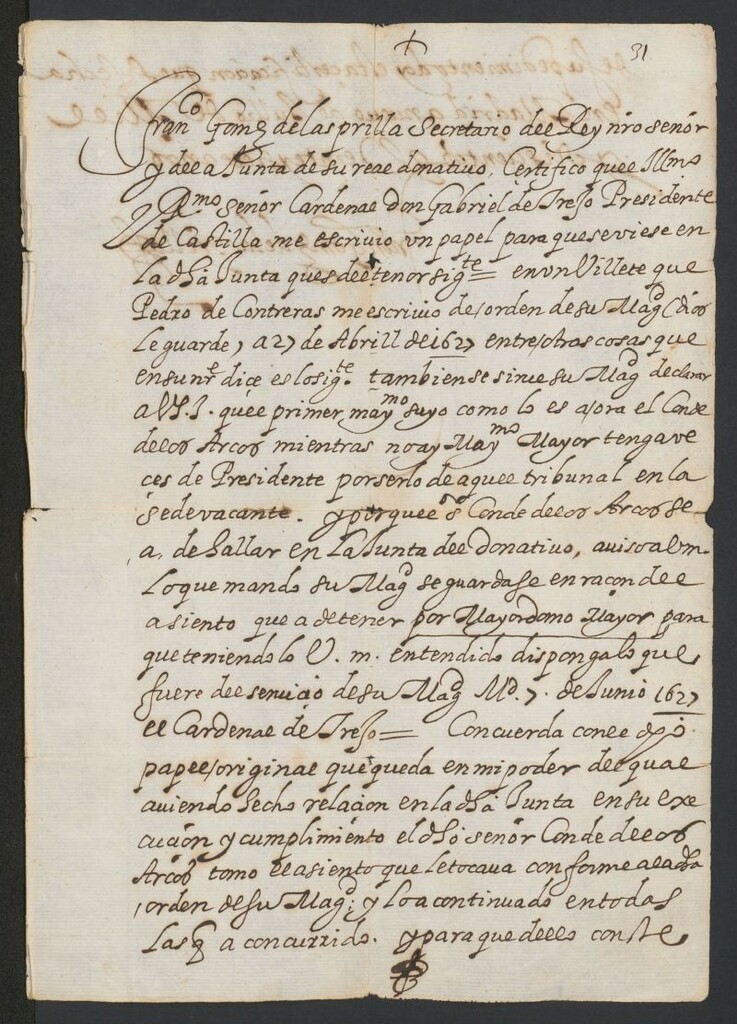 31
Franco Gomz de las prilla Secretario del Rey nro señor
y de la Junta de su real donativo, Certifico quel Illmo
Rmo señor Cardenal Don Gabriel de Trejo Presidente
de Castilla me escrivio vn papel para que se viese en
la dha Junta ques del tenor sigte = en vn Villete que
Pedro de Contreras me escrivio de orden de su Magd (dios
le guarde) a 27 de Abrill de 1627 entre otras cosas que
en su nre dice es lo sigte. tambien se sirve su Magd declarar
a V.S.I. quel primer maymo suyo como lo es aora el Conde
de los Arcos mientras no ay Maymo Mayor tenga ve
ces de Presidente por serlo de aquel tribunal en la
sede vacante. y porquel sr Conde de los Arcos se
a, de hallar en la Junta del Donativo, aviso a V.m.
lo que mando su Magd se guardase en racon del
asiento que a de tener por Mayordomo Mayor para
que teniendolo V. m. entendido disponga lo que
fuere del servicio de su Magd Md. 7. de Junio 1627
el Cardenal de Trejo = Concuerda con el dho
papel original que queda en mi poder del qual
aviendo hecho relacion en la dha Junta en su exe
cucion y cumplimiento el dho señor Conde de los
Arcos tomo el asiento que le tocava conforme a la dha
orden de su Magd; y lo a continuado en todas
las q a concurrido. y para que dello conste